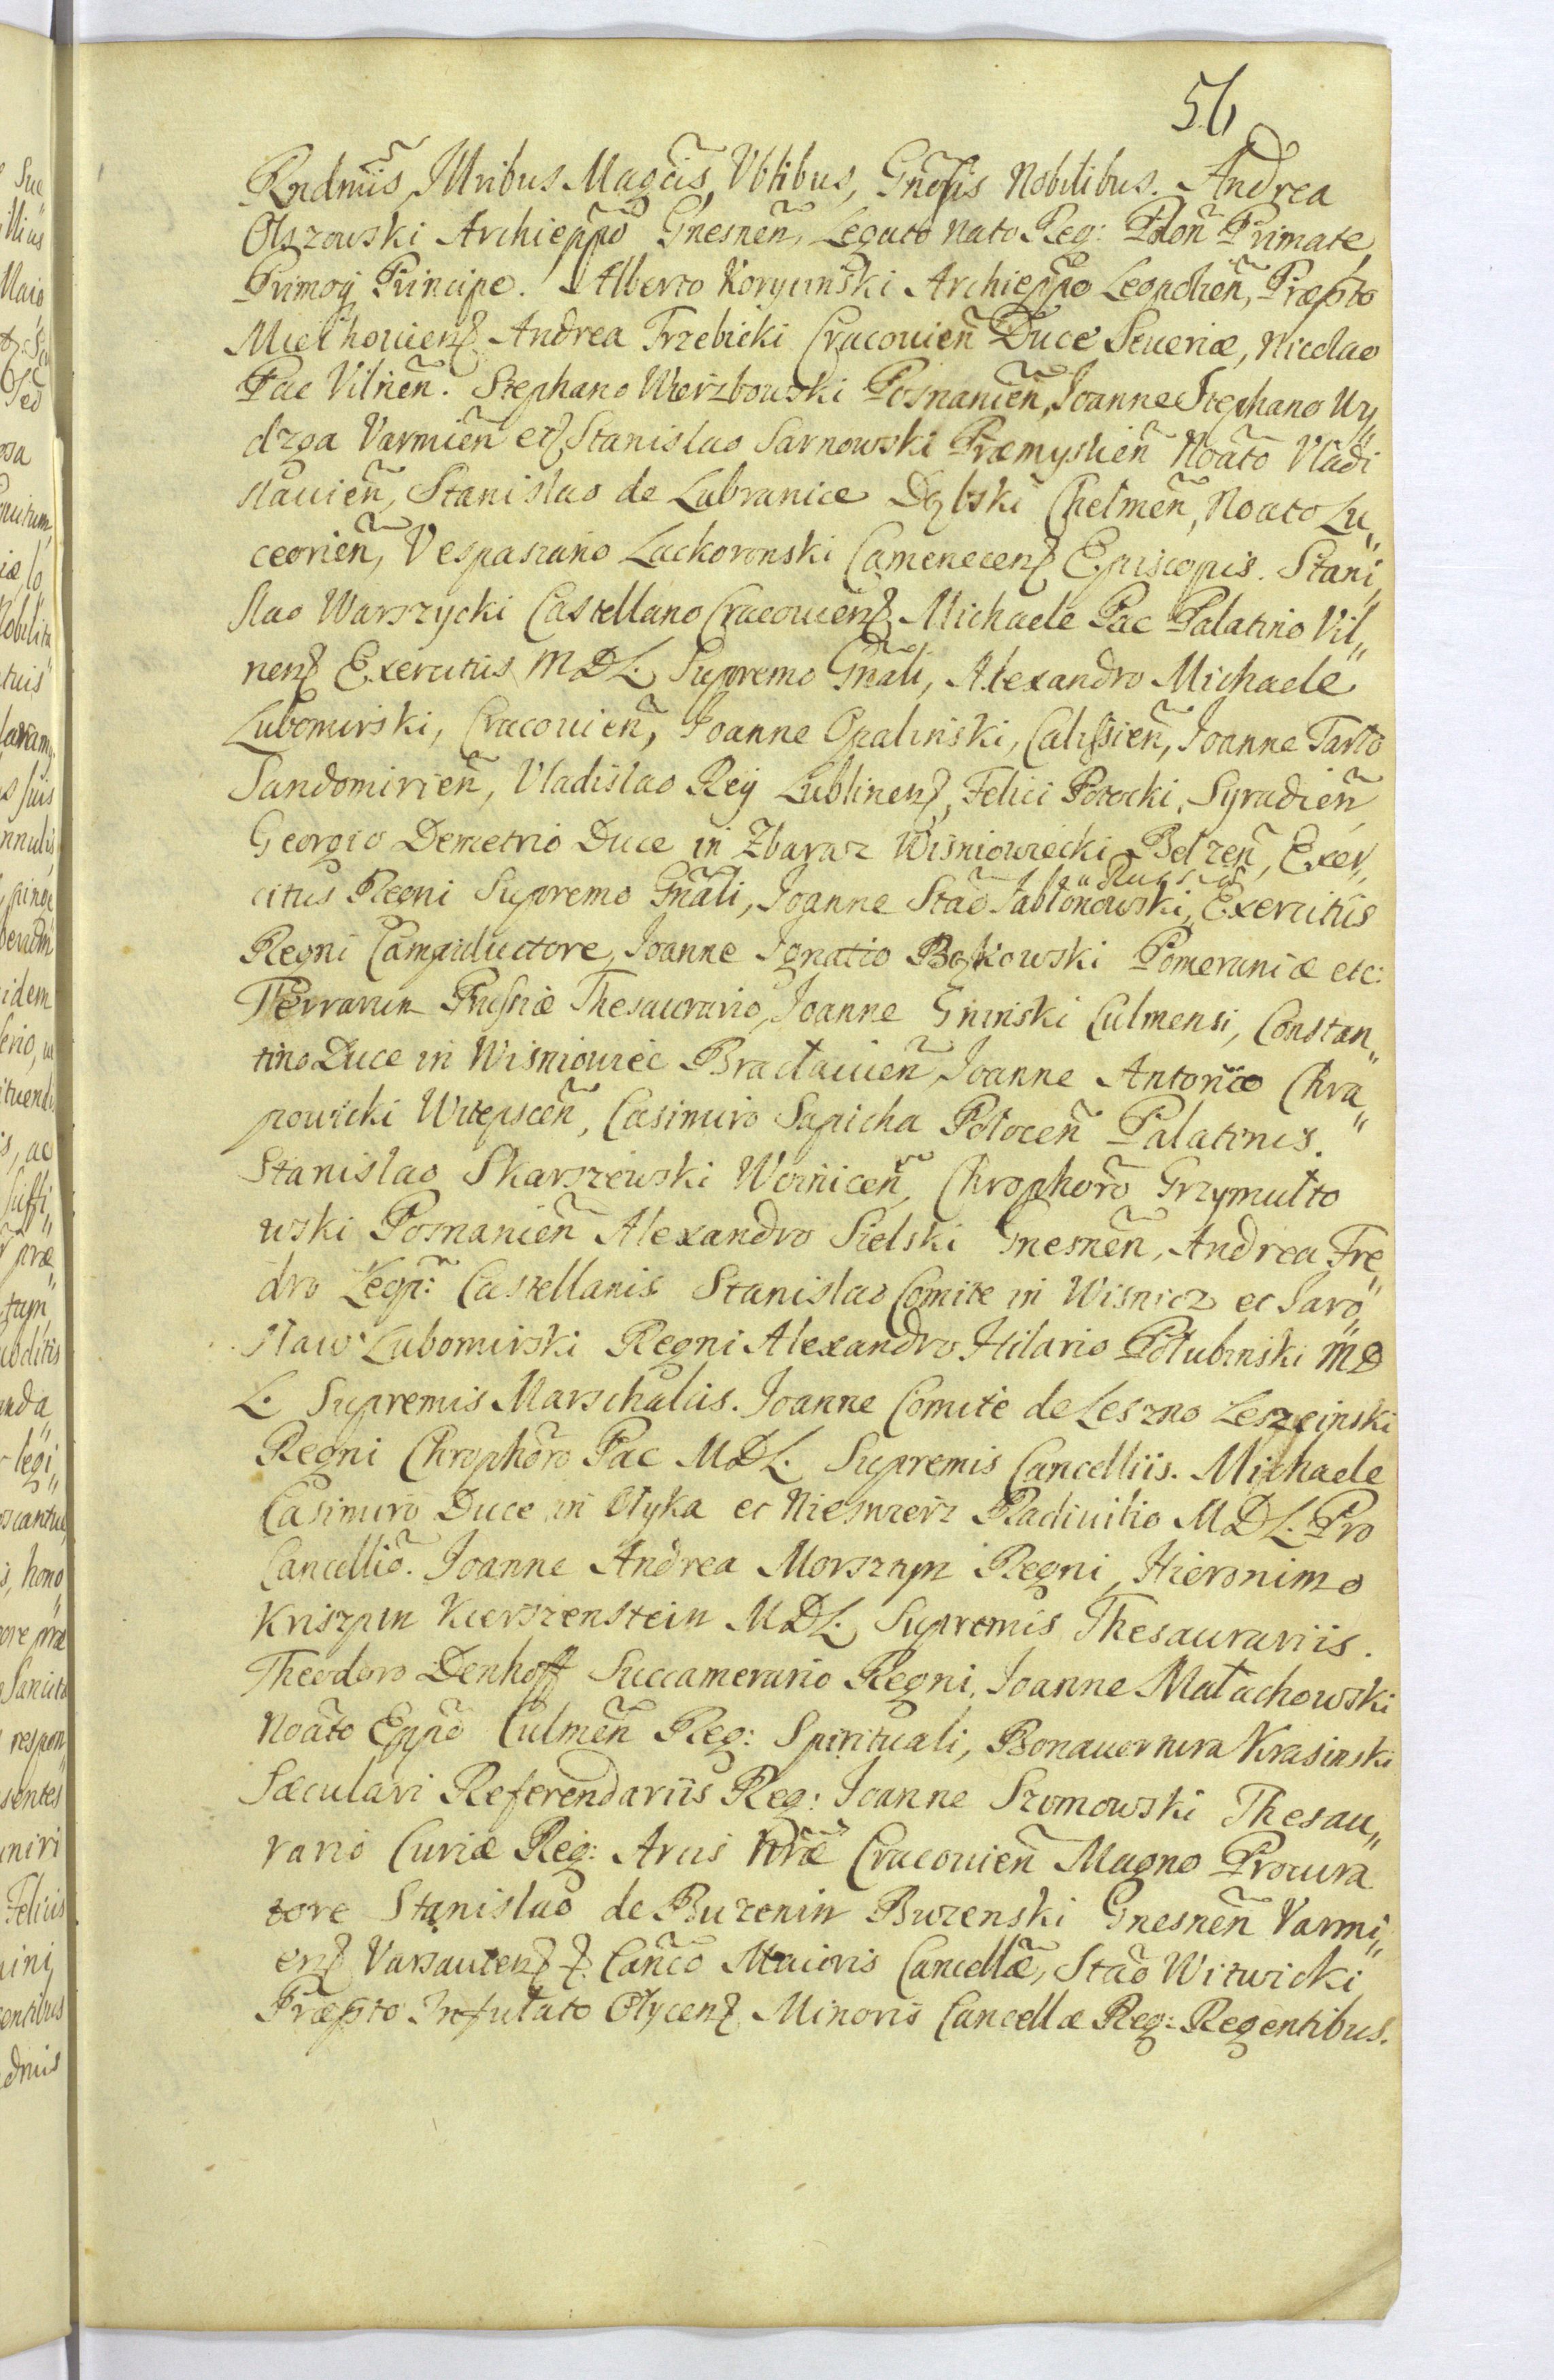 56
Rndmis, Illribus Magcis, Vbtibus, Gnosis Nobilibus. Andrea
Olszowski Archieppo Gnesnen, Legato Nato Reg: Polon Primate,
Primoq Principe. Alberto Koryciński Archieppo Leopolien, Præpto
Miechouien Andrea Trzebicki Cracouien Duce Seueriæ, Nicolao
Pac Vilnen. Stephano Wierzbowski Posnanien, Joanne Stephano Wy„
dzga Varmien et Stanislao Sarnowski Præmyslien Noato Vladi
slauien, Stanislao de Lubranice Dębski Chelmen, Noato Lu„
ceorien, Vespasiano Lackoronski Camenecen Episcopis. Stani„
slao Warszycki Castellano Cracouien Michaele Pac Palatino Vil„
nen Exercitus MDL Supremo Gnali, Alexandro Michaele
Lubomirski, Cracouien, Joanne Opalinski, Calissien, Joanne Tarło
Sandomirien, Vladislao Rey Lublinen, Felici Potocki, Syradien
Georgio Demetrio Duce in Zbaraz Wisniowiecki Belzen, Exer„
citus Regni Supremo Gnali, Joanne Stao Jabłonowski, Exercitus
Regni Campiductore, Joanne Ignatio Bąkowski Pomeraniæ etc:
Terrarum Prussiæ Thesaurario, Joanne Gninski Culmensi, Constan„
tino Duce in Wisniowiec Bracłauien Joanne Antonio Chra„
powicki Witepscen, Casimiro Sapieha Połocen Palatinis.
Stanislao Skarszewski Woinicen, Chrophoro Grzymułto
wski Posnanien Alexandro Sielski Gnesnen, Andrea Fre„
dro Leop: Castellanis Stanislao Comite in Wisnicz et Jaro„
slaw Lubomirski Regni Alexandro Hilario Połubinski MD
L. Supremis Marschalcis. Joanne Comite de Leszno Leszczinski
Regni Chrophoro Pac MDL. Supremis Cancelliis. Michaele
Casimiro Duce in Olyka et Nieswierz Radiuilio MDL. Pro
Cancellio. Joanne Andrea Morsztyn Regni, Hieronimo
Kriszpin Kierszenstein MDL. Supremis Thesaurariis.
Theodoro Denhoff Succamerario Regni, Joanne Małachowski
Noato Eppo Culmen Reg: Spirituali, Bonauentura Krasinski
Sæculari Referendariis Reg: Joanne Szomowski Thesau„
rario Curiæ Reg: Arcis Nræ Cracouien Magno Procura
tore Stanislao de Buzenin Buzenski Gnesnen Varmi„
en Varsauien Canco Maioris Cancellæ, Stao Witwicki
Præpto Infulato Olycen Minoris Cancellæ Reg: Regentibus.